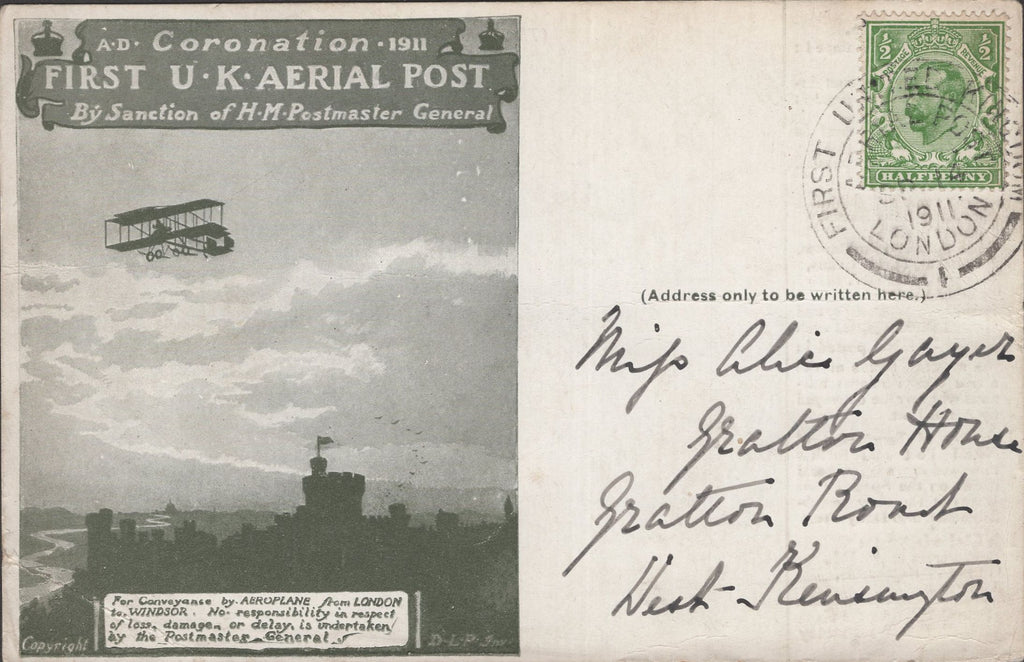 A·D· Coronation ·1911
FIRST U·K·AERIAL POST
By Sanction of H·M·Postmaster General
½ ½
POSTAGE REVENUE
HALFPENNY
FIRST
1911
LONDON
1
(Address only to be written here.)
Miss Alice Gayer
Gratton House
Gratton Road
West Kensington
For Conveyance by AEROPLANE from LONDON
to WINDSOR. No responsibility in respect
of loss, damage, or delay, is undertaken
by the Postmaster General
Copyright